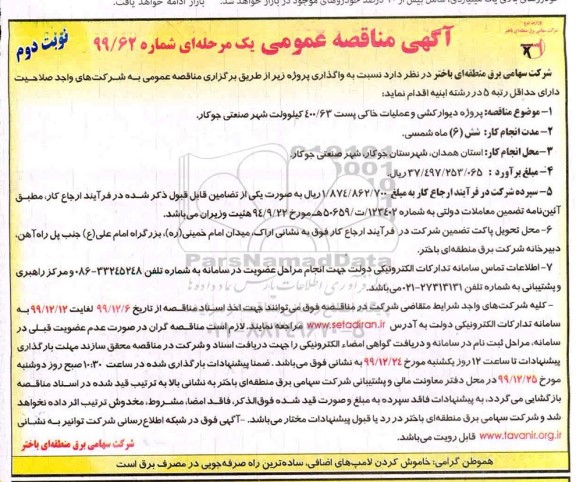 آگهی مناقصه عمومی یک مرحله‌ای شماره ۹۹/۶۲
نوبت دوم
شرکت سهامی برق منطقه‌ای باختر در نظر دارد نسبت به واگذاری پروژه زیر از طریق برگزاری مناقصه عمومی به شرکت‌های واجد صلاحیت
دارای حداقل رتبه ۵ در رشته ابنیه اقدام نماید:
۱- موضوع مناقصه: پروژه دیوارکشی و عملیات خاکی پست ۴۰۰/۶۳ کیلوولت شهر صنعتی جوکار.
۲- مدت انجام کار: شش (۶) ماه شمسی.
۳- محل انجام کار: استان همدان، شهرستان جوکار، شهر صنعتی جوکار.
۴- مبلغ برآورد : ۳۷/۴۹۷/۲۵۳/۰۶۵ ریال.
۵- سپرده شرکت در فرآیند ارجاع کار به مبلغ ۱/۸۷۴/۸۶۲/۷۰۰ ریال به صورت یکی از تضامین قابل قبول ذکر شده در فرآیند ارجاع کار، مطبق
آئین‌نامه تضمین معاملات دولتی به شماره ۱۲۳۴۰۲/ت/۵۰۶۵۹هـ مورخ ۹۴/۹/۲۲ هئیت وزیران می‌باشد.
۶- محل تحویل پاکت تضمین شرکت در فرآیند ارجاع کار فوق به نشانی اراک، میدان امام خمینی(ره)، بزرگراه امام علی(ع) جنب پل راه‌آهن،
دبیرخانه شرکت برق منطقه‌ای باختر.
۷- اطلاعات تماس سامانه تدارکات الکترونیکی دولت جهت انجام مراحل عضویت در سامانه به شماره تلفن ۳۳۲۴۵۲۴۸-۰۸۶ و مرکز راهبری
و پشتیبانی به شماره تلفن ۲۷۳۱۳۱۳۱-۰۲۱ می‌باشد.
- کلیه شرکت‌های واجد شرایط متقاضی شرکت در مناقصه فوق می‌توانند جهت اخذ اسناد مناقصه از تاریخ ۹۹/۱۲/۶ لغایت ۹۹/۱۲/۱۲ به
سامانه تدارکات الکترونیکی دولت به آدرس www.setadiran.ir مراجعه نمایند. لازم است مناقصه گران در صورت عدم عضویت قبلی در
سامانه، مراحل ثبت نام در سامانه و دریافت گواهی امضاء الکترونیکی را جهت دریافت اسناد و شرکت در مناقصه محقق سازند مهلت بارگذاری
پیشنهادات تا ساعت ۱۲ روز یکشنبه مورخ ۹۹/۱۲/۲۴ به نشانی فوق می‌باشد. ضمنا پیشنهادات بارگذاری شده در ساعت ۱۰:۳۰ صبح روز دوشنبه
مورخ ۹۹/۱۲/۲۵ در محل دفتر معاونت مالی و پشتیبانی شرکت سهامی برق منطقه‌ای باختر به نشانی بالا به ترتیب قید شده در اسناد مناقصه
بازگشایی می‌گردد، به پیشنهادات فاقد سپرده به مبلغ و صورت قید شده فوق‌الذکر، فاقد امضا، مشروط، مخدوش ترتیب اثر داده نخواهد
شد و شرکت سهامی برق منطقه‌ای باختر در رد یا قبول پیشنهادات مختار می‌باشد. -آگهی فوق در شبکه اطلاع‌رسانی شرکت توانیر به نشانی
www.tavanir.org.ir قابل رویت می‌باشد.
شرکت سهامی برق منطقه‌ای باختر
هموطن گرامی: خاموش کردن لامپ‌های اضافی، ساده‌ترین راه صرفه‌جویی در مصرف برق است